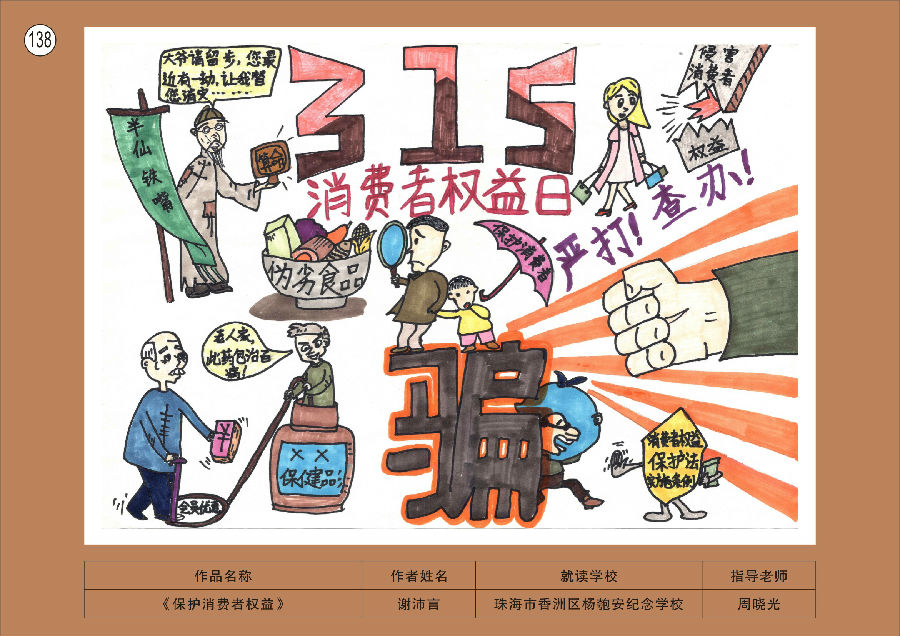 138
大爷请留步,您最
近有一劫,让我替
您消灾……
315
消费者权益日
侵害
消费者
权益
半仙铁嘴
算命
严打!查办!
保护消费者
伪劣食品
老人家,
此药包治百
病!
¥
XX
保健品
会员优惠
骗
消费者权益
保护法
实施条例
作品名称
作者姓名
就读学校
指导老师
《保护消费者权益》
谢沛言
珠海市香洲区杨匏安纪念学校
周晓光